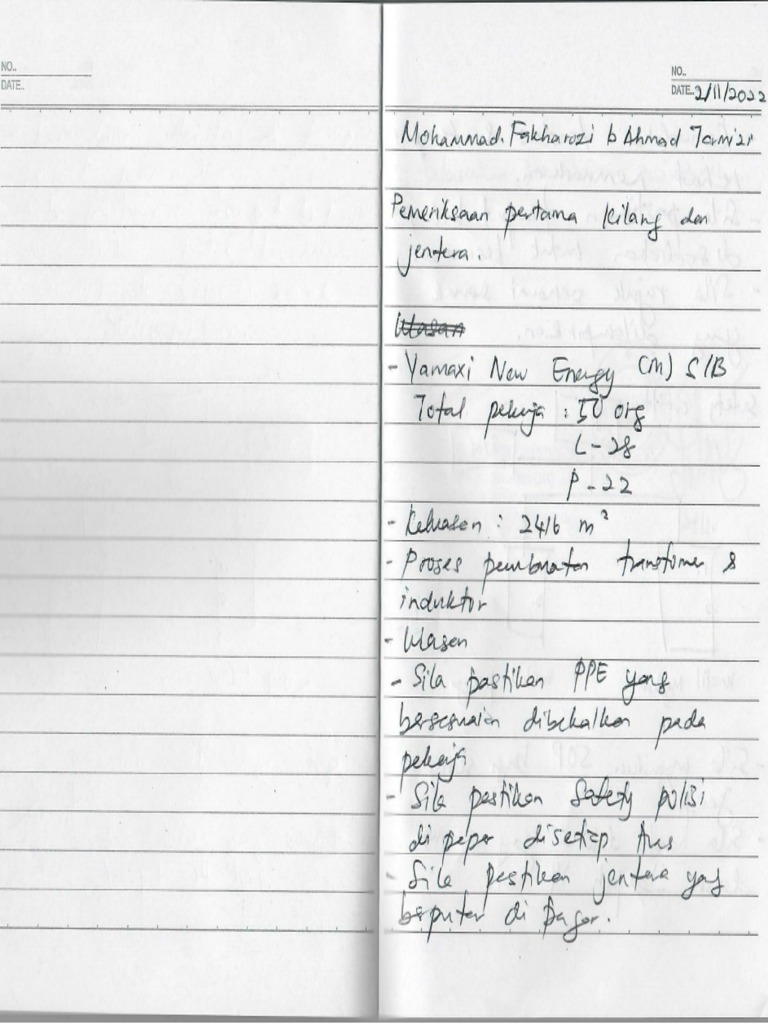 NO..
DATE..
NO..
DATE.. 2/11/2022
Mohammad. Fakharozi b Ahmad Tarmizi
Pemeriksaan pertama kilang dan
jentera.
Ulasan
- Yamaxi New Energy (M) S/B
Total pekerja : 50 org
L - 28
P - 22
- Keluasan : 2416 m²
- Proses pembuatan transfomer &
induktor
- Ulasan
- Sila pastikan PPE yang
bersesuaian dibekalkan pada
pekerja
- Sila pastikan Safety polisi
di papar disetiap
- Sila pastikan jentera yang
berputar di pagar.